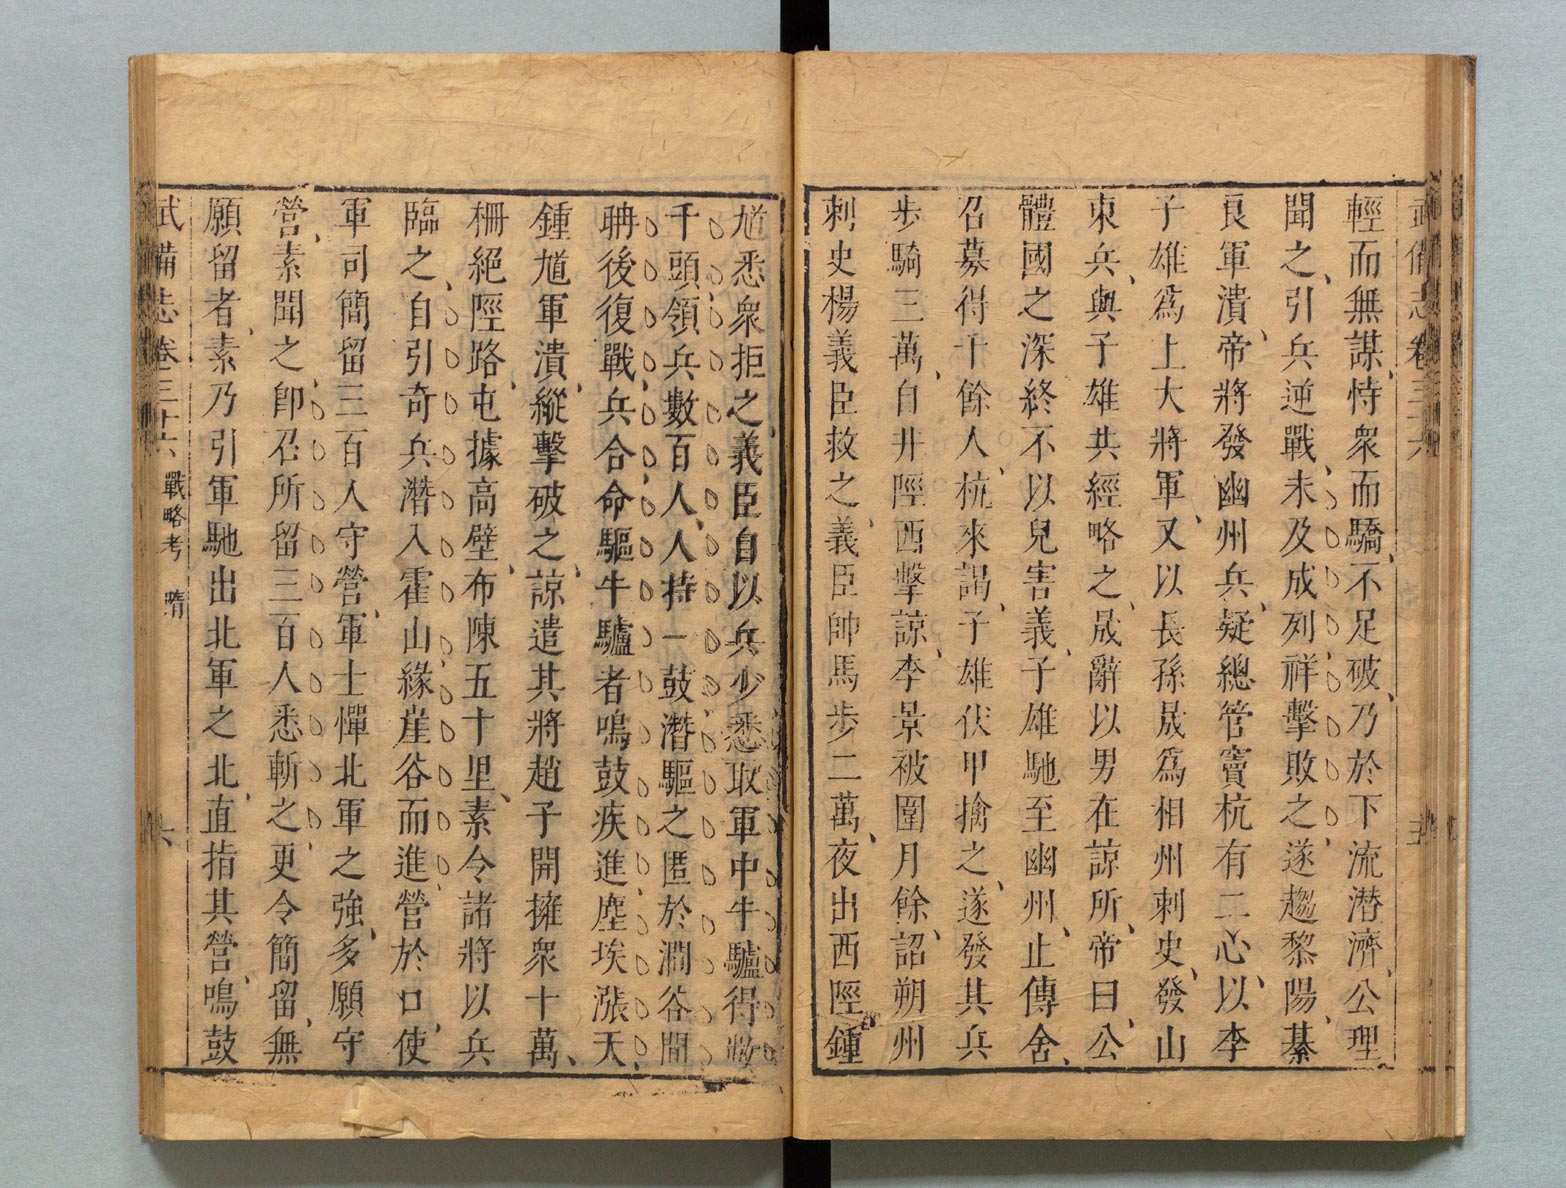 武備志卷三十六 五
輕而無謀、恃衆而驕、不足破、乃於下流潜濟、公理
聞之、引兵逆戰、未及成列、祥擊敗之、遂趨黎陽、綦
良軍潰、帝將發幽州兵、疑總管竇杭有二心、以李
子雄爲上大將軍、又以長孫晟爲相州刺史、發山
東兵、與子雄共經略之、晟辭以男在諒所、帝曰、公
體國之深終不以兒害義、子雄馳至幽州、止傳舍、
召募得千餘人、杭來謁、子雄伏甲擒之、遂發其兵
步騎三萬、自井陘西擊諒、李景被圍月餘、詔朔州
刺史楊義臣救之、義臣帥馬步二萬、夜出西陘、鍾
馗悉衆拒之、義臣自以兵少、悉取軍中牛驢得數
千頭、領兵數百人、人持一鼓、潜驅之匿於澗谷間
晡後復戰、兵合、命驅牛驢者鳴鼓疾進、塵埃漲天、
鍾馗軍潰、縱擊破之、諒遣其將趙子開擁衆十萬、
柵絕陘路、屯據高壁、布陳五十里、素令諸將以兵
臨之、自引奇兵潜入霍山、緣崖谷而進、營於口、使
軍司簡留三百人守營、軍士憚北軍之強、多願守
營、素聞之、卽召所留三百人悉斬之、更令簡留、無
願留者、素乃引軍馳出北軍之北、直指其營、鳴鼓
武備志卷三十六 戰略考 隋 六